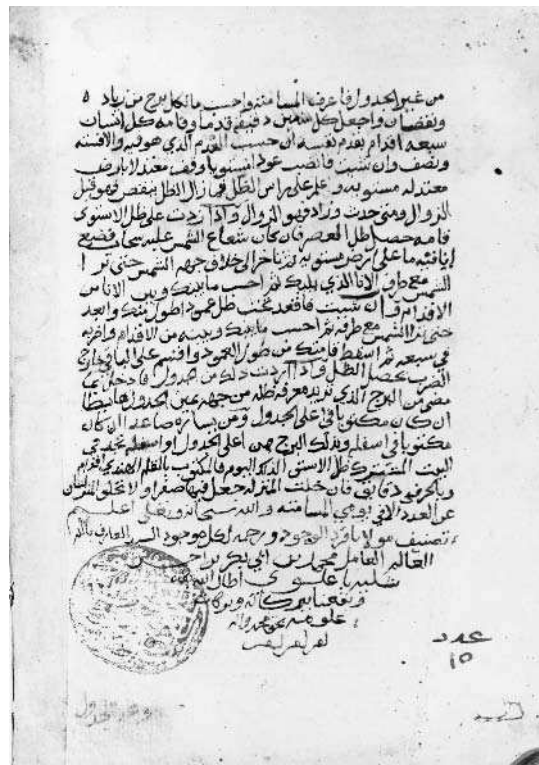 من غير الجدول فاعرف المسامتة واحسب ما لكل برج من زيادة
ونقصان واجعل كل ستين دقيقة قدما وقامة كل انسان
سبعة اقدام بقدم نفسه ان حسب القدم الذي هو فيه والا فستة
ونصف وان شيت فانصب عودا مستويا وقف معتدلا بارض
معتدلة مستوية وعلم على راس الظل فما زال الظل ينقص فهو قبل
الزوال ومتى حدث وزاد فهو الزوال واذا زدت على ظل الاستوى
قامة حصل ظل العصر فان كان شعاع الشمس عليه فضع
ما على ارض مستوية ثم تاخر الى خلاف جهة الشمس حتى ترا
الشمس مع طرف الانا الذي ثم احسب ما بينك وبين الانا من
الاقدام وان شيت فاقعد تحت ظل عمود اطول منك وابعد
حتى ترا الشمس مع طرفه ثم احسب ما بينك وبينه من الاقدام واضربه
في سبعة ثم اسقط قامتك من طول العمود واقسم على الباقي فخارج
يحصل الظل واذا اردت ذلك من جدول فادخل بما
مضى من البرج الذي تريد معرفة ظله من جهة يمين الجدول هابطا
ان كان مكتوبا في اعلى الجدول ومن يساره صاعدا ان كان
مكتوبا في اسفله وبذلك البرج من اعلى الجدول او اسفله تجد في
البيت المشترك ظل الاستوى لذلك اليوم فالمكتوب بالقلم الهندي اقدام
وبالحرف دقايق فان خلت المنزلة جعل فيها صفر اولا تخلو المنزلتان
عن العدد الا في يومي المسامتة والله سبحانه وتعالى اعلم
تصنيف مولانا فريد الوجود ورحمة لكل موجود السيد العارف بالله
العالم العامل محمد بن ابي بكر بن
شلية باعلوي اطال الله
ونفعنا ببركاته وبركات
علومه
عدد
١٥